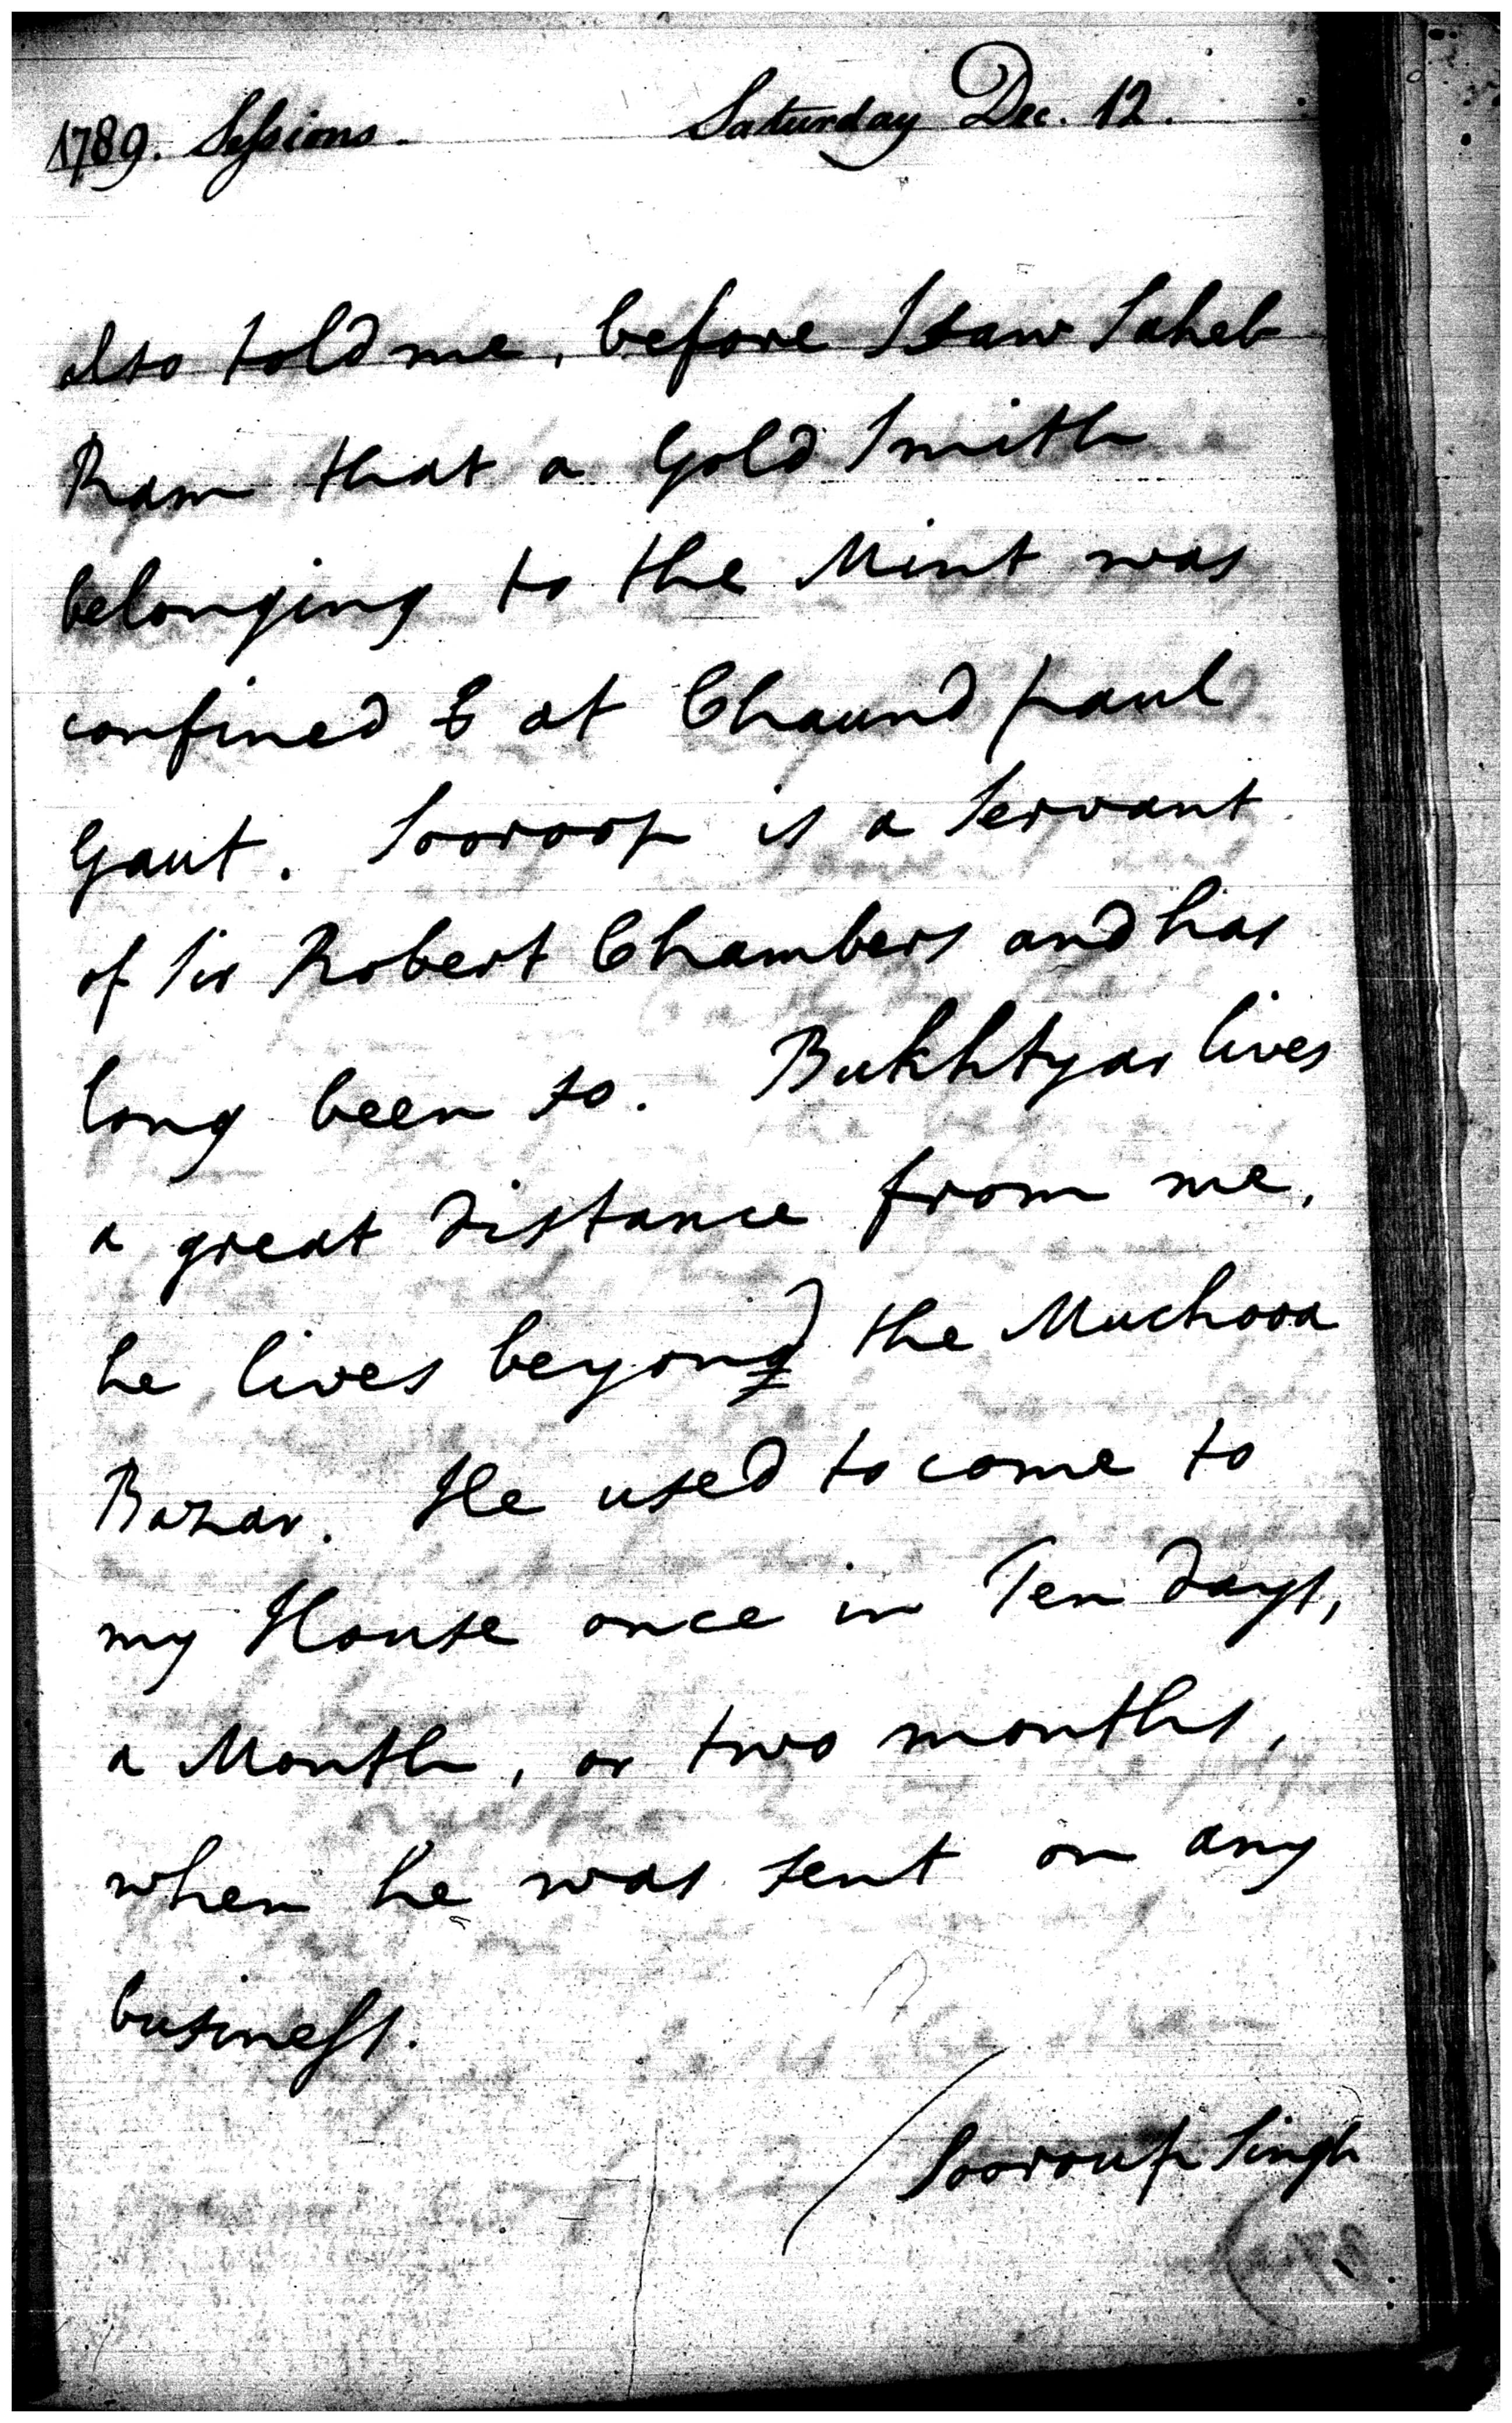 1789. Sessions. Saturday Dec. 12.
also told me, before I saw Saheb
Ram that a Gold Smith
belonging to the Mint was
confined & at Chaund paul
Gaut. Sooroop is a Servant
of Sir Robert Chambers and has
long been so. Bukhtyar lives
a great distance from me,
he lives beyond the Muchooa
Bazar. He used to come to
my House once in Ten days,
a Month, or two months,
when he was sent on any
business.
Sooroup Singh